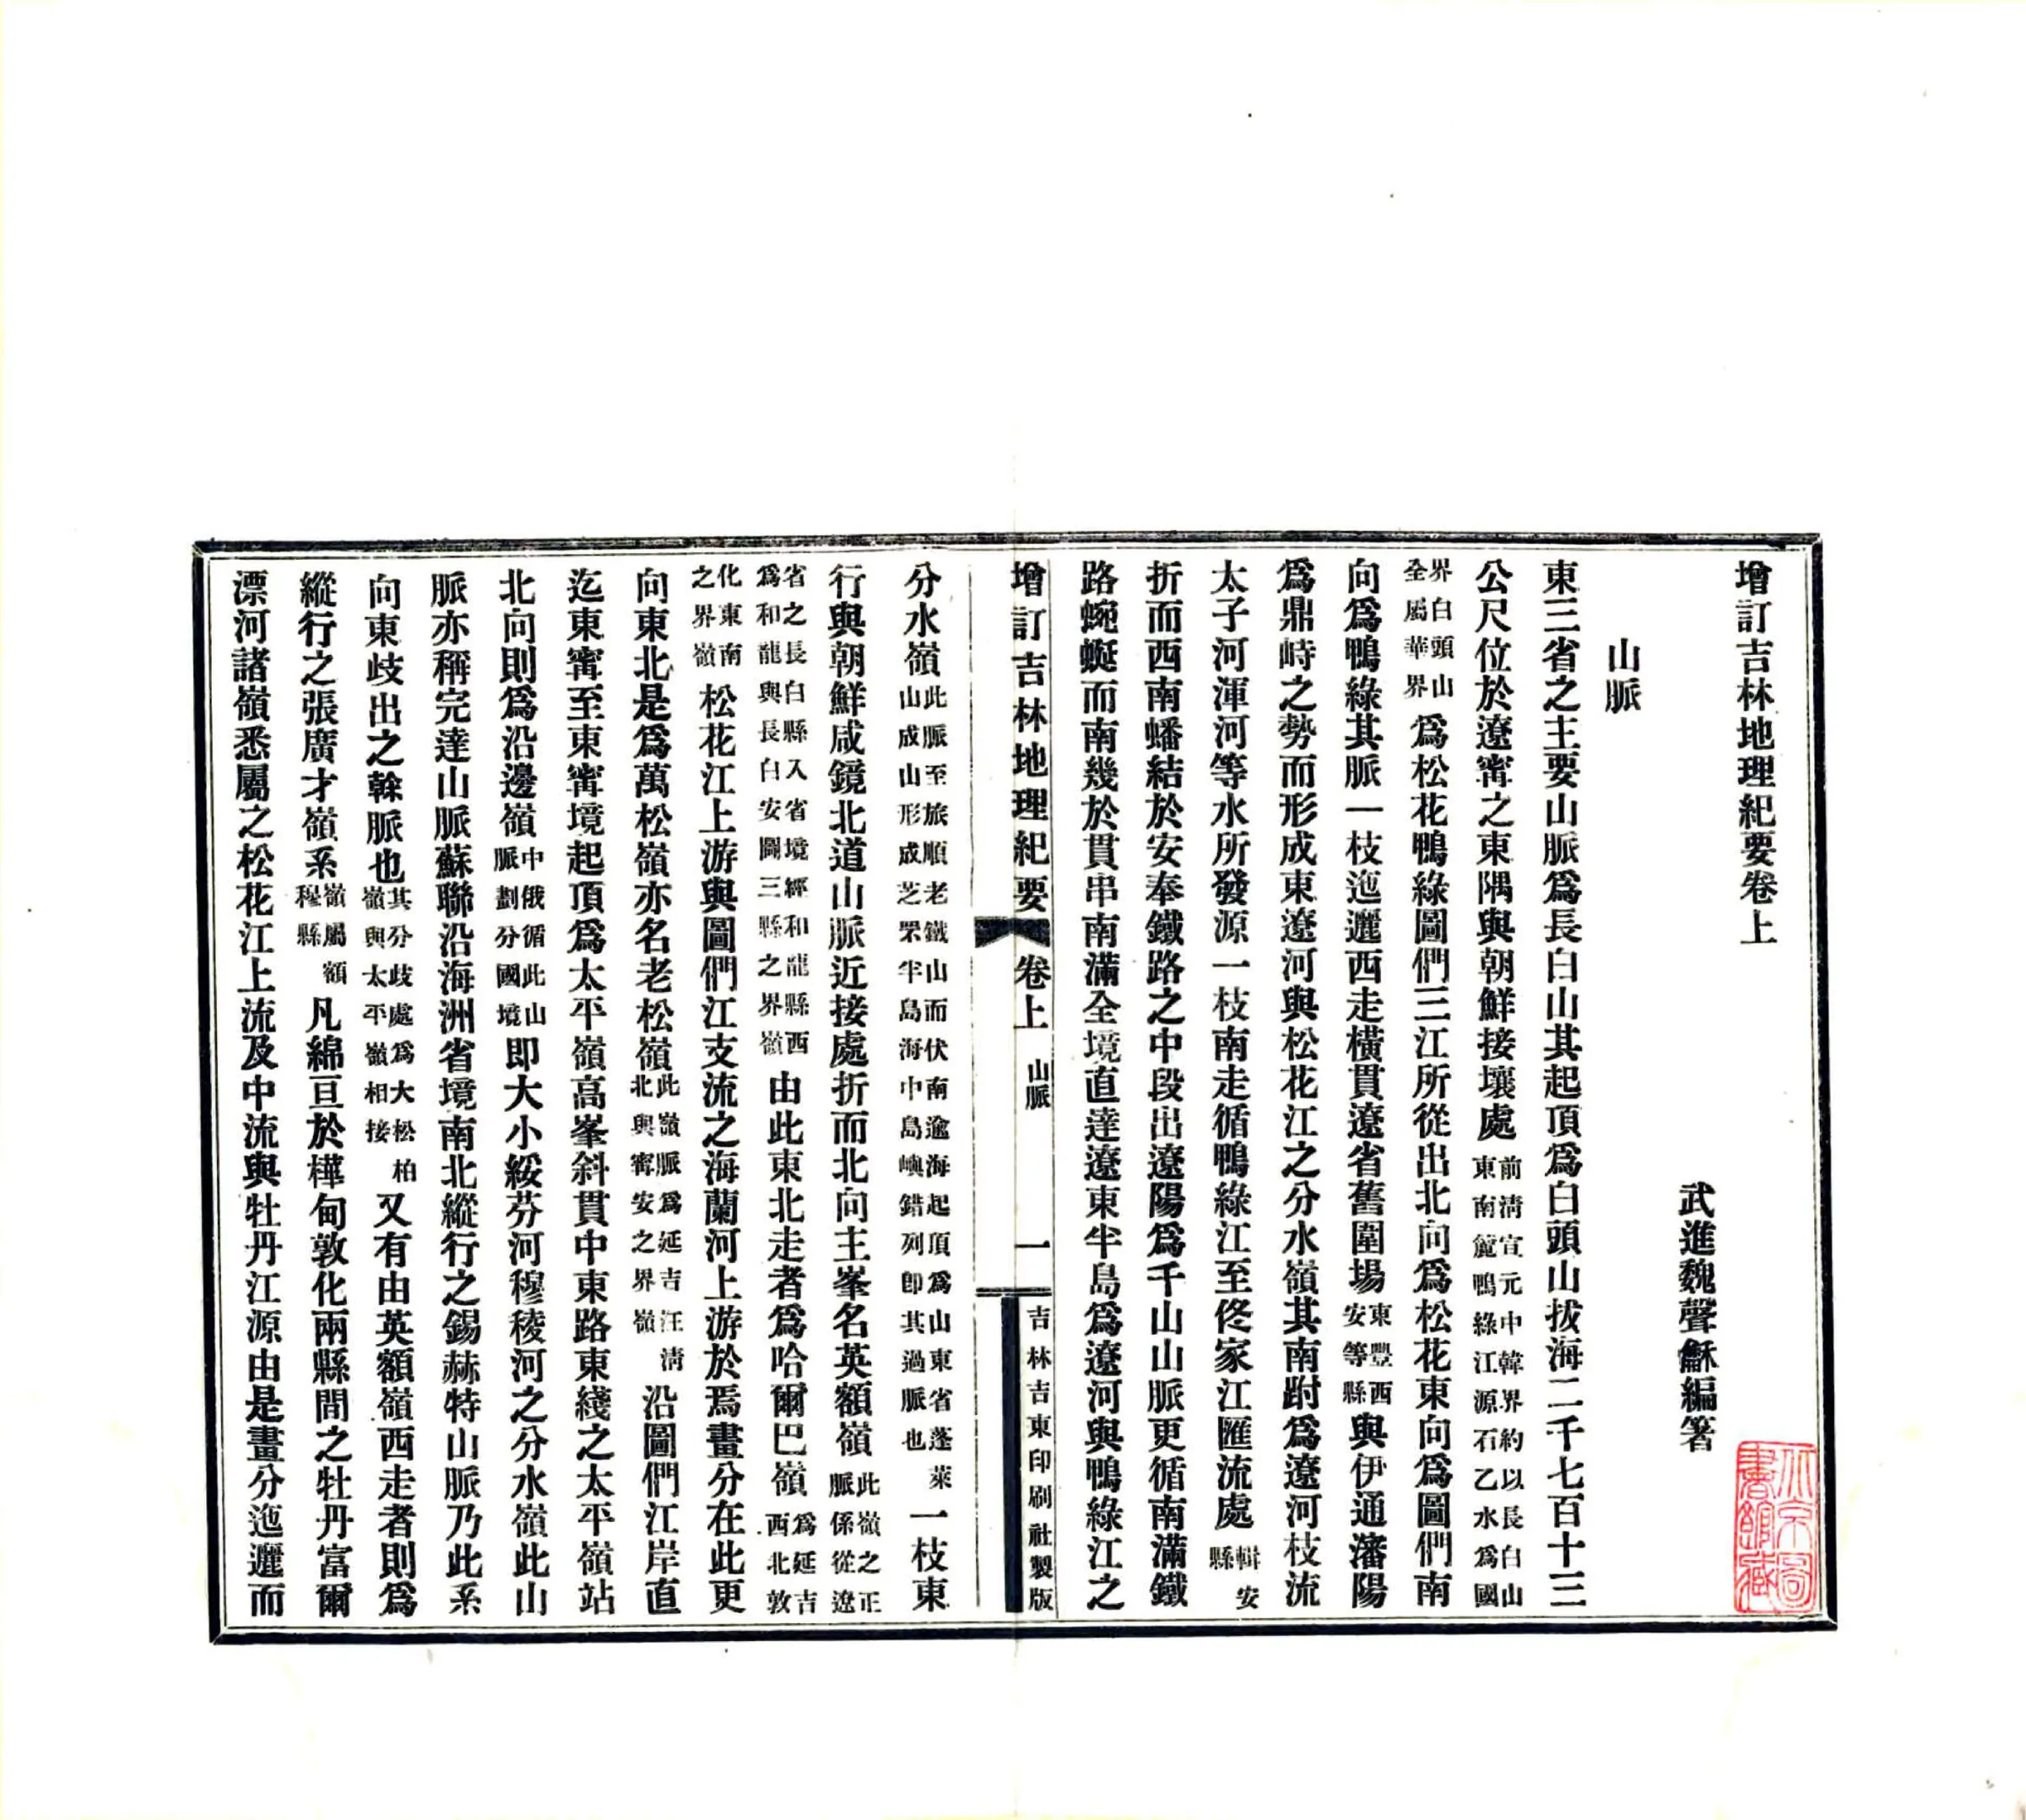 增訂吉林地理紀要卷上
武進魏聲龢編箸
山脈
東三省之主要山脈爲長白山其起頂爲白頭山拔海二千七百十三
公尺位於遼甯之東隅與朝鮮接壤處前清宣元中韓界約以長白山東南麓鴨綠江源石乙水爲國
界白頭山全屬華界爲松花鴨綠圖們三江所從出北向爲松花東向爲圖們南
向爲鴨綠其脈一枝迤邐西走橫貫遼省舊圍場東豐西安等縣與伊通瀋陽
爲鼎峙之勢而形成東遼河與松花江之分水嶺其南跗爲遼河枝流
太子河渾河等水所發源一枝南走循鴨綠江至佟家江匯流處輯安縣
折而西南蟠結於安奉鐵路之中段出遼陽爲千山山脈更循南滿鐵
路蜿蜒而南幾於貫串南滿全境直達遼東半島爲遼河與鴨綠江之
增訂吉林地理紀要 卷上 山脈 一 吉林吉東印刷社製版
分水嶺此脈至旅順老鐵山而伏南逾海起頂爲山東省蓬萊山成山形成芝罘半島海中島嶼錯列卽其過脈也一枝東
行與朝鮮咸鏡北道山脈近接處折而北向主峯名英額嶺此嶺之正脈係從遼
省之長白縣入省境經和龍縣西爲和龍與長白安圖三縣之界嶺由此東北走者爲哈爾巴嶺爲延吉西北敦
化東南之界嶺松花江上游與圖們江支流之海蘭河上游於焉畫分在此更
向東北是爲萬松嶺亦名老松嶺此嶺脈爲延吉汪清北與甯安之界嶺沿圖們江岸直
迄東甯至東甯境起頂爲太平嶺高峯斜貫中東路東綫之太平嶺站
北向則爲沿邊嶺中俄循此山脈劃分國境即大小綏芬河穆稜河之分水嶺此山
脈亦稱完達山脈蘇聯沿海洲省境南北縱行之錫赫特山脈乃此系
向東歧出之榦脈也其分歧處爲大松柏嶺與太平嶺相接又有由英額嶺西走者則爲
縱行之張廣才嶺系嶺屬額穆縣凡綿亘於樺甸敦化兩縣間之牡丹富爾
漂河諸嶺悉屬之松花江上流及中流與牡丹江源由是畫分迤邐而